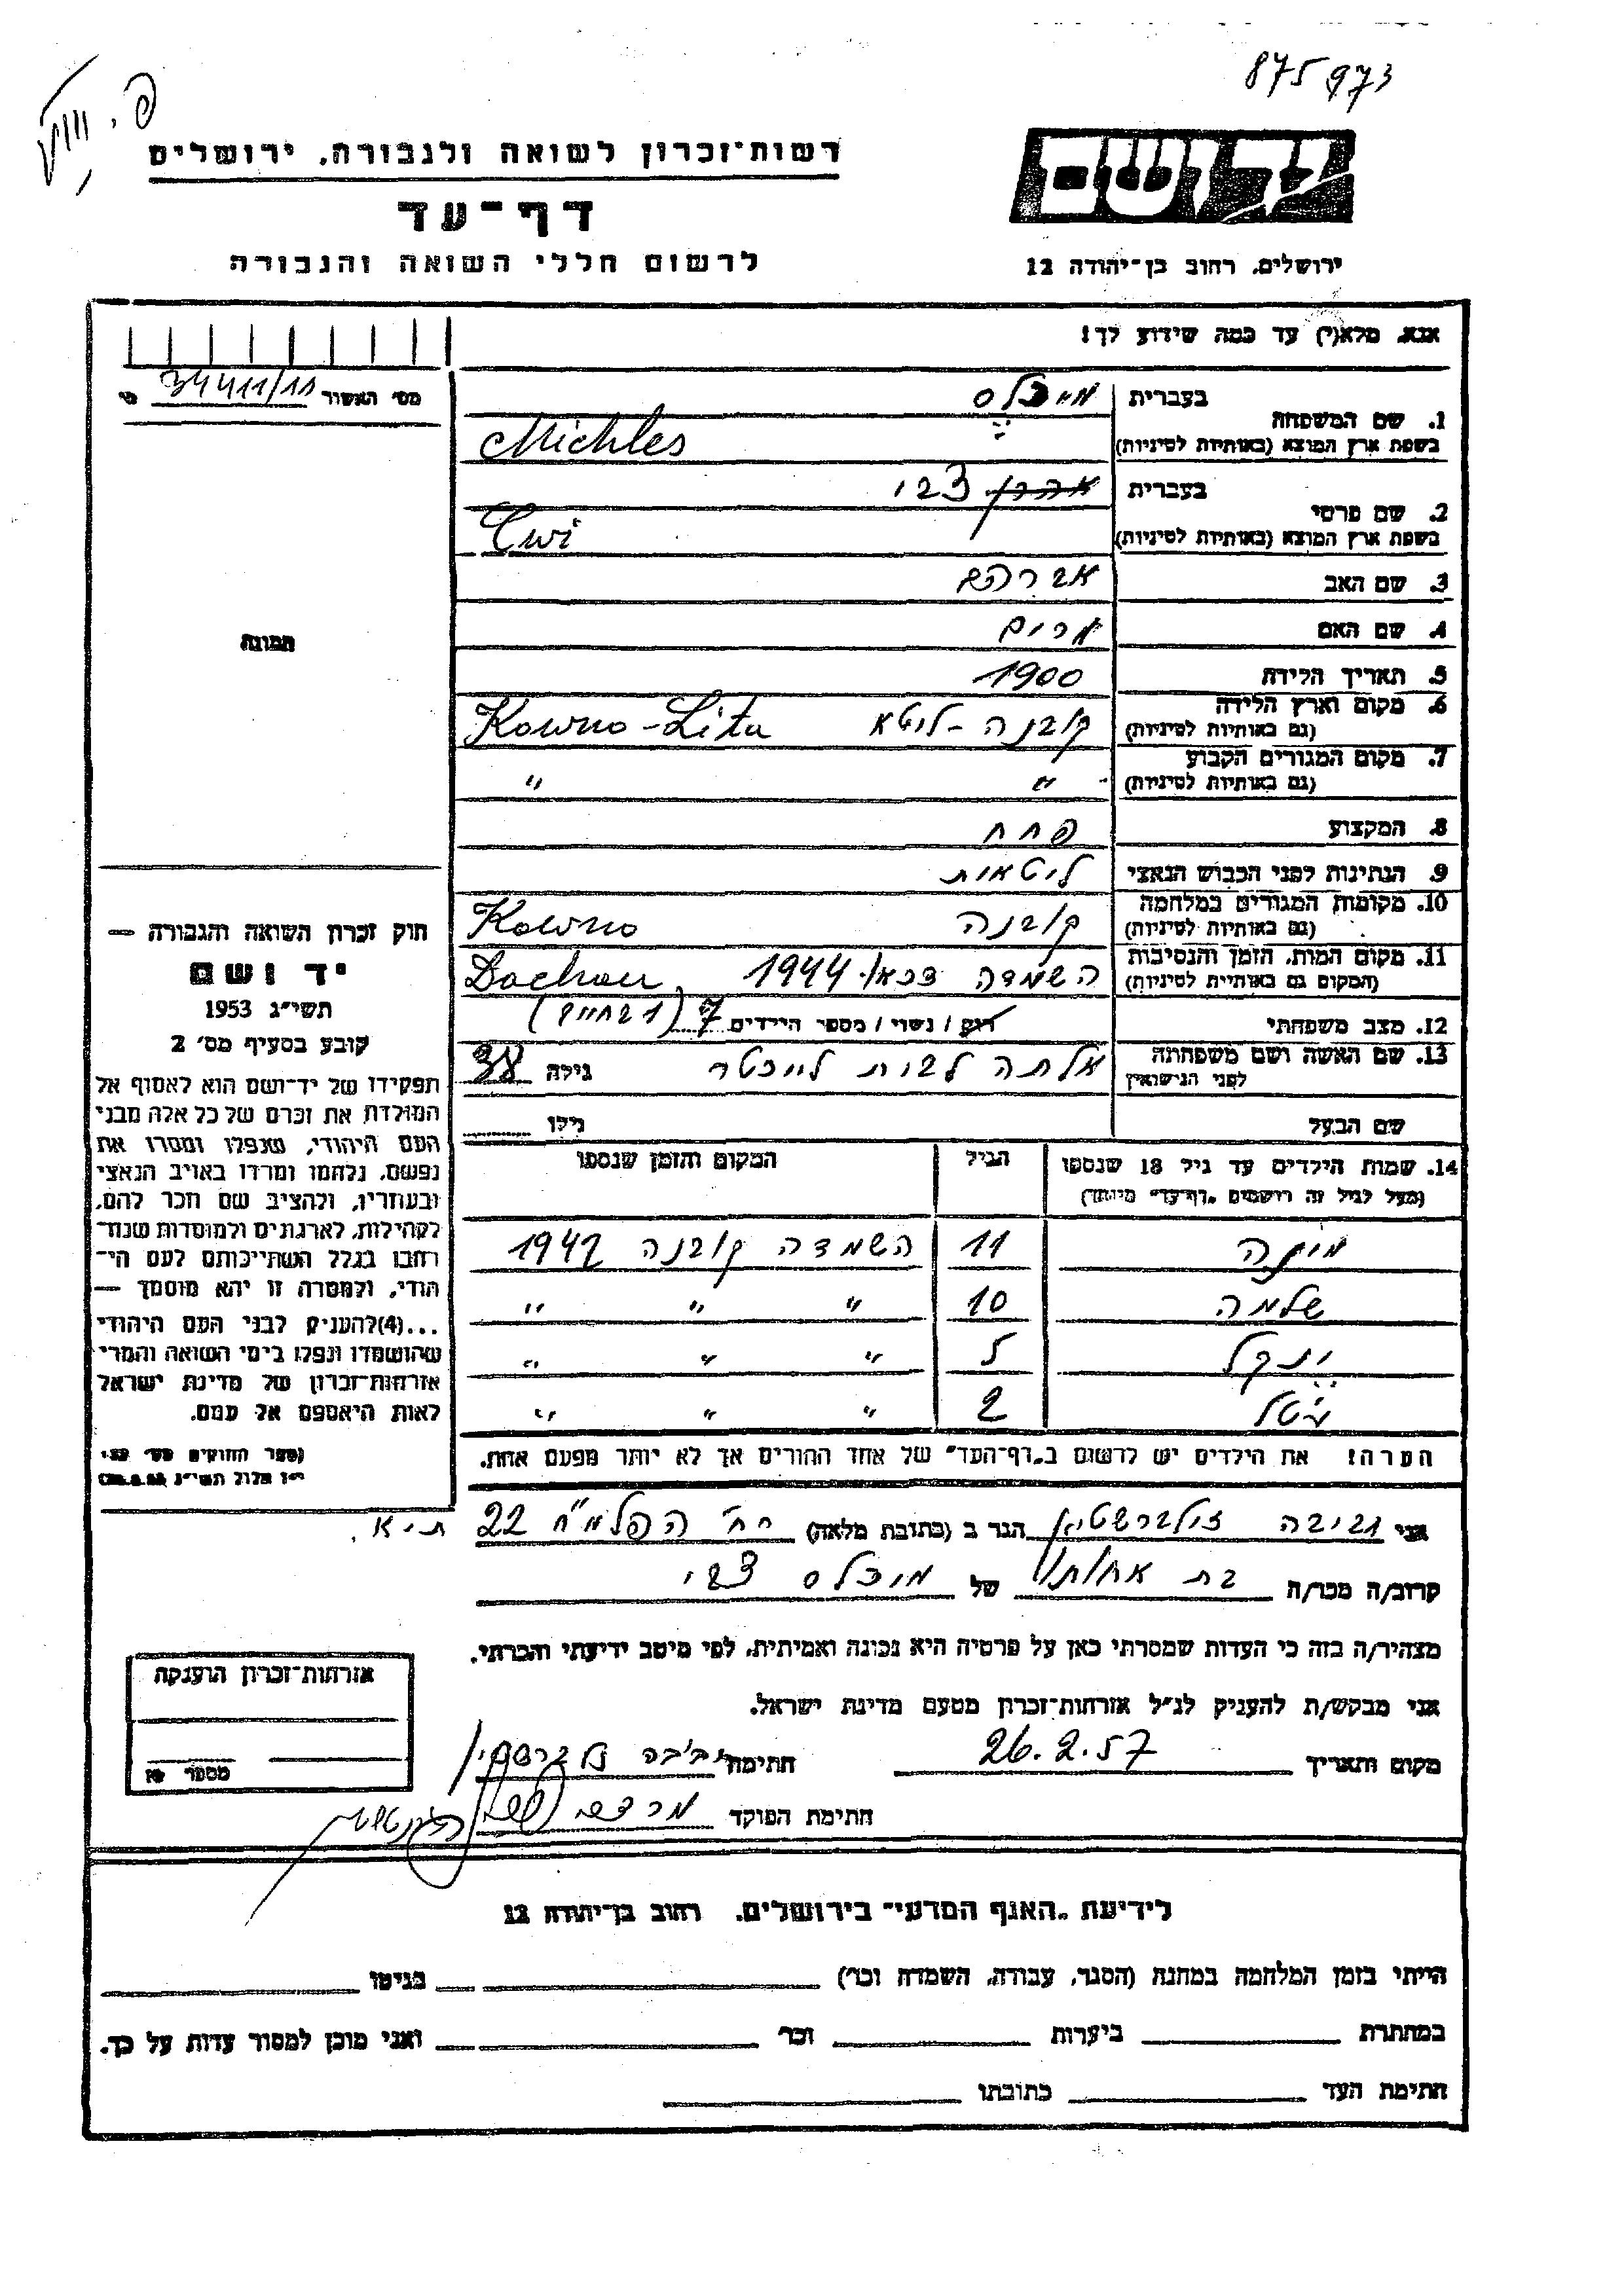 875973
רשות־זכרון לשואה ולגבורה. ירושלים
דף־עד
לרשום חללי השואה והגבורה
ירושלים. רחוב בן־יהודה 12
אנא, מלא(י) עד כמה שידוע לך!
מס׳ האשור 34411/11
1. שם המשפחה בעברית
(בשפת ארץ המוצא (באותיות לטיניות Michles
2. שם פרטי בעברית אהרן צבי
(בשפת ארץ המוצא (באותיות לטיניות Cwi
3. שם האב אברהם
4. שם האם מרים
5. תאריך הלידה 1900
6. מקום וארץ הלידה (גם באותיות לטיניות) קובנה - ליטא Kowno - Lita
7. מקום המגורים הקבוע (גם באותיות לטיניות) " "
8. המקצוע פחח
9. הנתינות לפני הכבוש הנאצי ליטאית
10. מקומות המגורים במלחמה (גם באותיות לטיניות) קובנה Kowno
11. מקום המות, הזמן והנסיבות (המקום גם באותיות לטיניות) השמדה דכאו 1944 Dachau
12. מצב משפחתי רוק / נשוי / מספר הילדים 7 (1 בחיים)
13. שם האשה ושם משפחתה לפני הנישואין אלתה לבית לייכטר גילה 38
שם הבעל גילו
14. שמות הילדים עד גיל 18 שנספו הגיל המקום והזמן שנספו
(מעל לגיל זה רושמים „דף־עד" מיוחד)
11 השמדה קובנה 1942
שלמה 10 " " "
ינקל 5 " " "
2 " " "
הערה! את הילדים יש לרשום ב„דף־העד" של אחד ההורים אך לא יותר מפעם אחת.
תמונה
חוק זכרון השואה והגבורה —
יד ושם
תשי״ג 1953
קובע בסעיף מס׳ 2
תפקידו של יד־ושם הוא לאסוף אל
המולדת את זכרם של כל אלה מבני
העם היהודי, שנפלו ומסרו את
נפשם, נלחמו ומרדו באויב הנאצי
ובעוזריו, ולהציב שם וזכר להם,
לקהילות, לארגונים ולמוסדות שנח־
רבו בגלל השתייכותם לעם הי־
הודי, ולמטרה זו יהא מוסמך —
...(4) להעניק לבני העם היהודי
שהושמדו ונפלו בימי השואה והמרי
אזרחות־זכרון של מדינת ישראל
לאות היאספם אל עמם.
אני זילברשטיין הגר ב (כתובת מלאה) רח׳ הפלמ״ח 22 ת״א.
קרוב/ה מכר/ה בת אחותו של מיכלס צבי
מצהיר/ה בזה כי העדות שמסרתי כאן על פרטיה היא נכונה ואמיתית, לפי מיטב ידיעתי והכרתי.
אני מבקש/ת להעניק לנ״ל אזרחות־זכרון מטעם מדינת ישראל.
מקום ותאריך 26.2.57 חתימה
חתימת הפוקד
אזרחות־זכרון הוענקה
מספר
לידיעת „האגף המדעי" בירושלים. רחוב בן־יהודה 12
הייתי בזמן המלחמה במחנה (הסגר, עבודה, השמדה וכו׳) בגיטו
במחתרת ביערות וכו׳ ואני מוכן למסור עדות על כך.
חתימת העד כתובתו